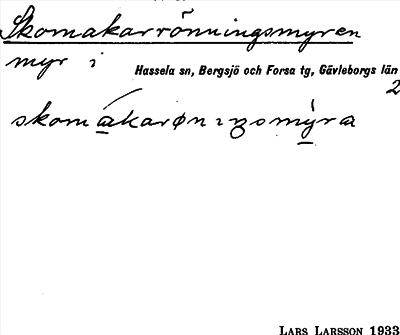 Skomakarrönningsmyren
myr i Hassela sn, Bergsjö och Forsa tg, Gävleborgs län
2
LARS LARSSON 1933